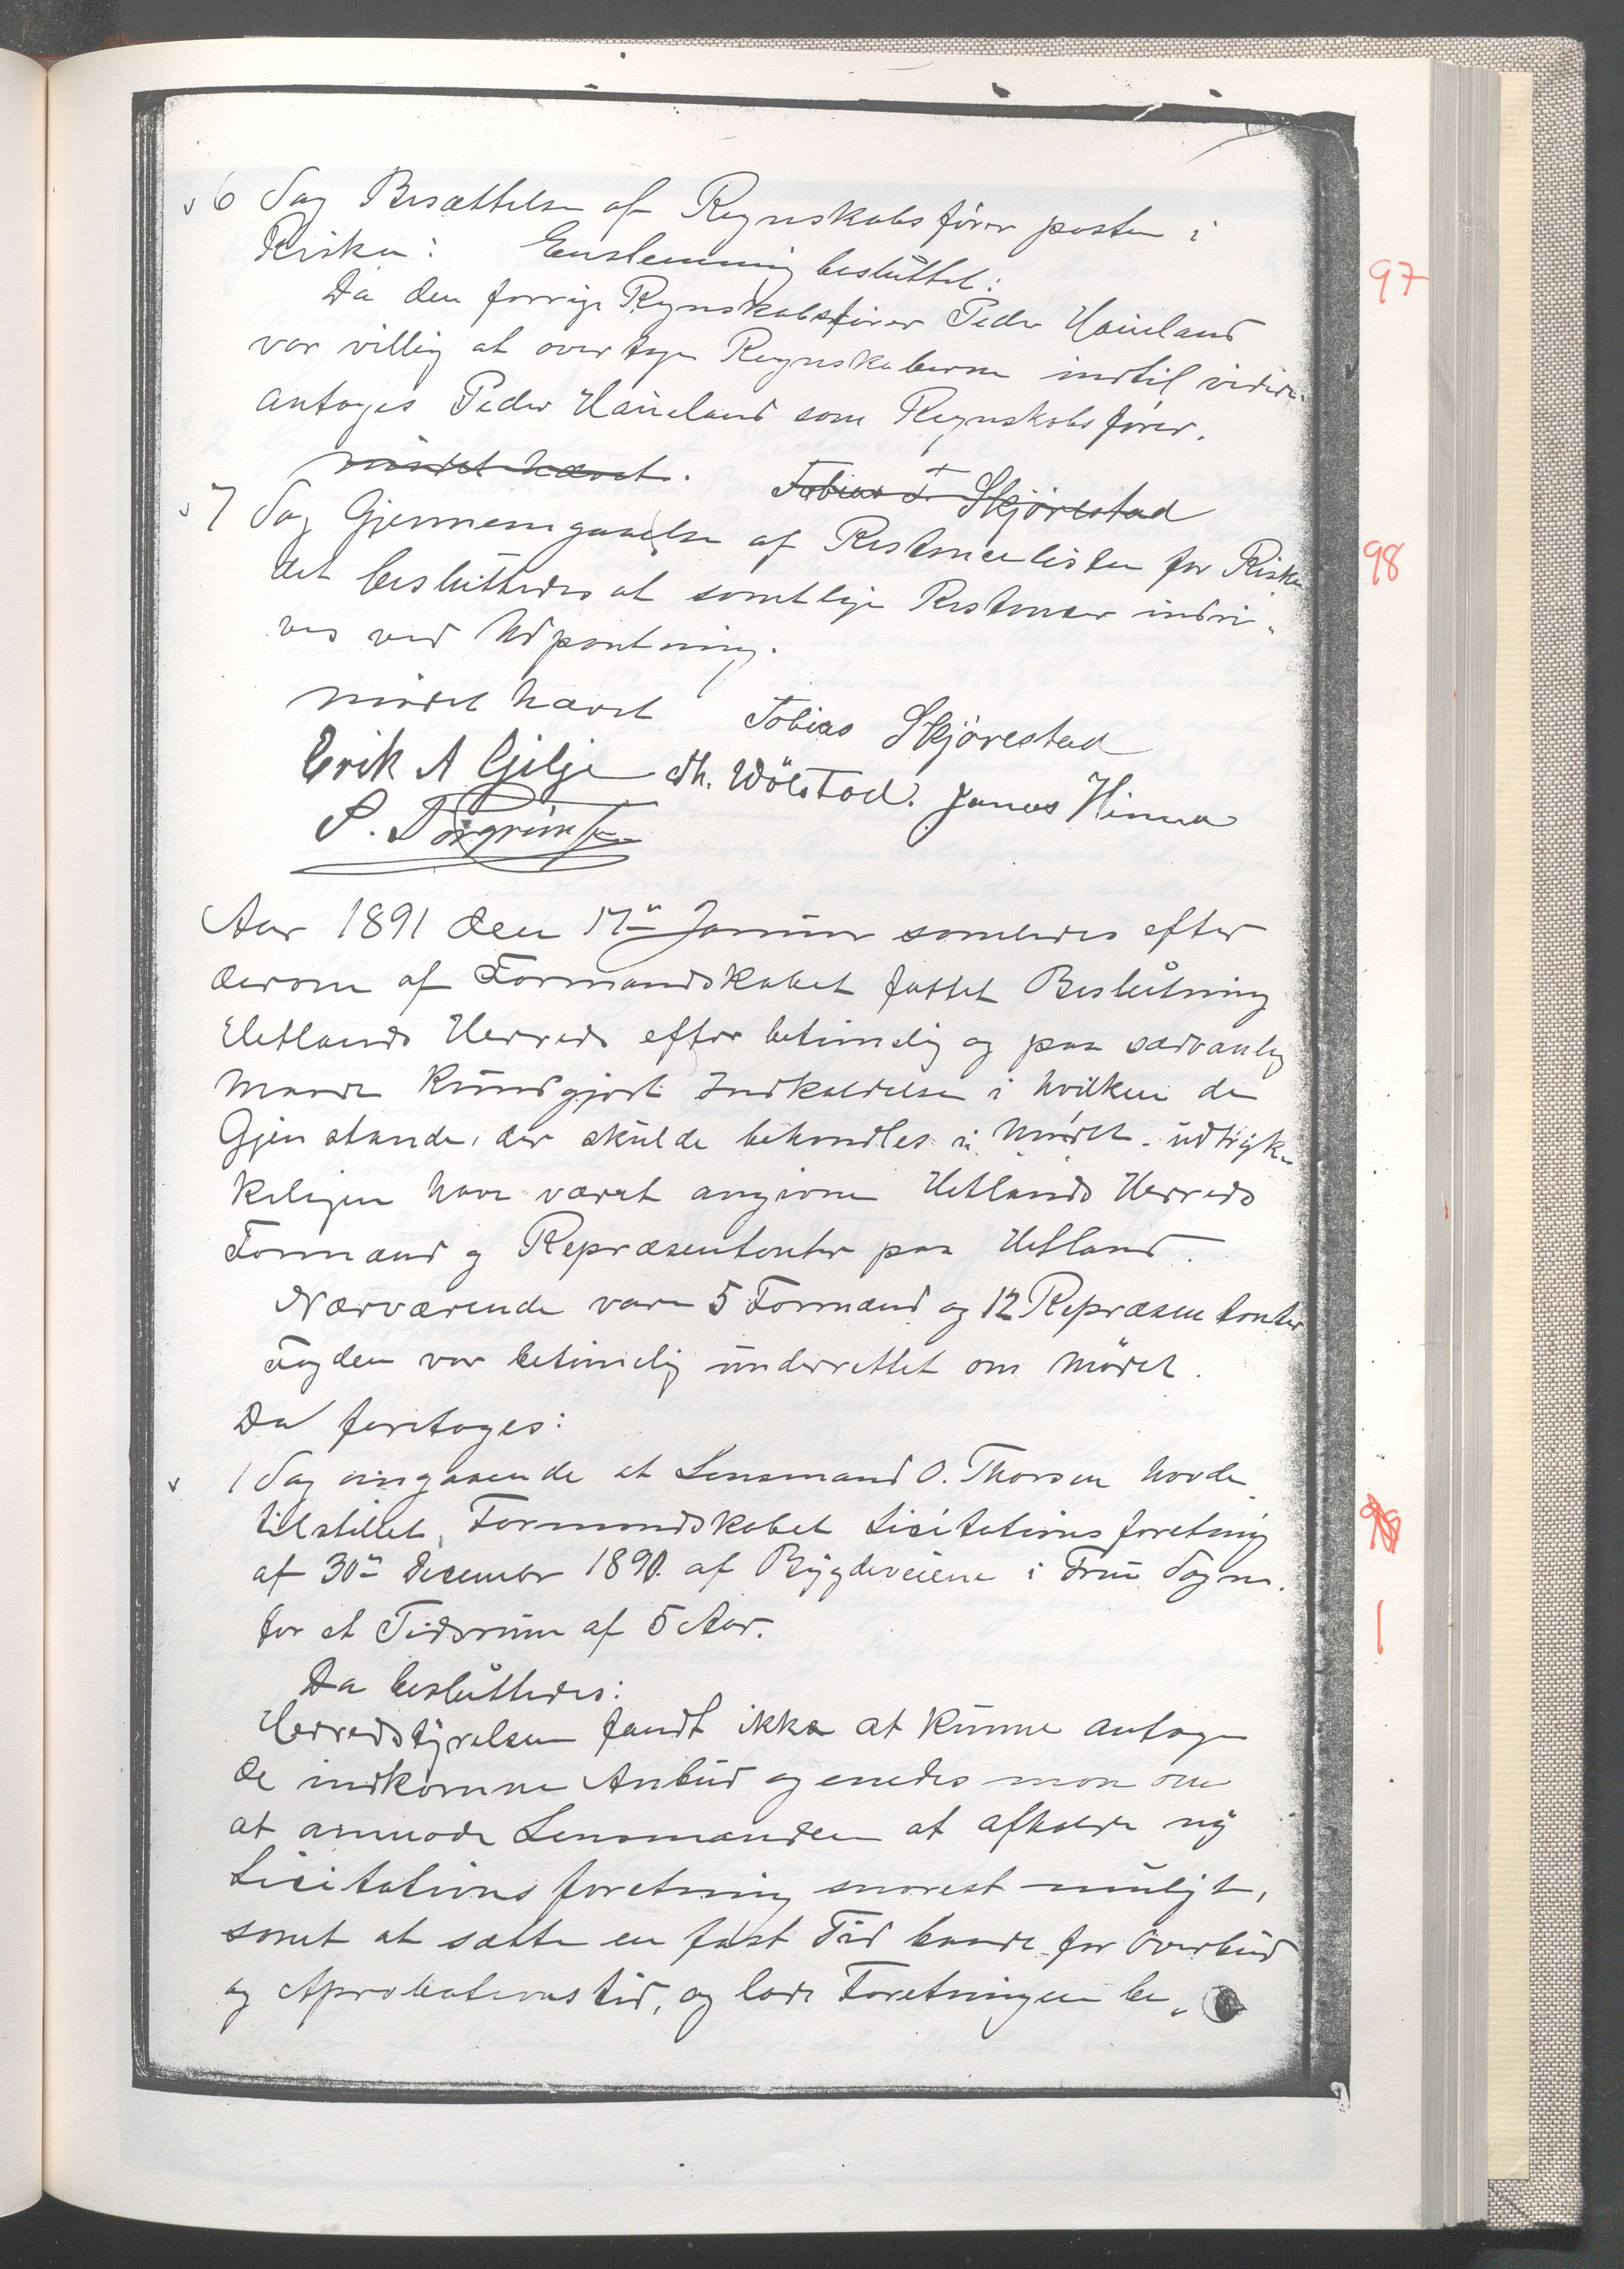 v 6 Sag Besættelse af Regnskabsfører posten i
Riska: Enstemmig besluttet:
97
Da den forrige Regnskabsfører Peder Haueland
var villig at overtage Regnskaberne indtil videre
antages Peder Haueland som Regnskabsfører.
mødet hævet. Tobias T. Skjørestad
v 7 Sag Gjennemgaaelse af Restancelisten for Riska
98
det besluttedes at samtlige Restancer indri-
ves ved Udpantning.
mødet hævet Tobias Skjørestad
Erik A Gilje Th. Wölstad. Jonas Hinna
S. Torgrimsen
Aar 1891 den 17de Januar samledes efter
derom af Formandskabet fattet Beslutning
Hetlands Herreds efter betimelig og paa sædvanlig
Maade Kundgjort Indkaldelse i hvilken de
Gjenstande, der skulde behandles i Mødet udtryk-
keligen have været angivne Hetlands Herreds
Formænd og Repræsentanter paa Hetland.
Nærværende vare 5 Formænd og 12 Repræsentanter
Fogden var betimelig underrettet om Mødet.
Da foretoges:
v 1 Sag angaaende at Lensmand O. Thorsen havde
tilstillet Formandskabet Licitationsforetning
af 30te December 1890. af Bygdeveiene i Frue Sogn.
for et Tidsrum af 5 Aar.
1
Da besluttedes:
Herredstyrelsen fandt ikke at kunne antage
de indkomne Anbud og enedes man om
at anmode Lensmanden at afholde ny
Licitationsforetning snarest muligt,
samt at sætte en fast Tid baade for Overbud
og Aprobationstid, og lade Foretningen be-